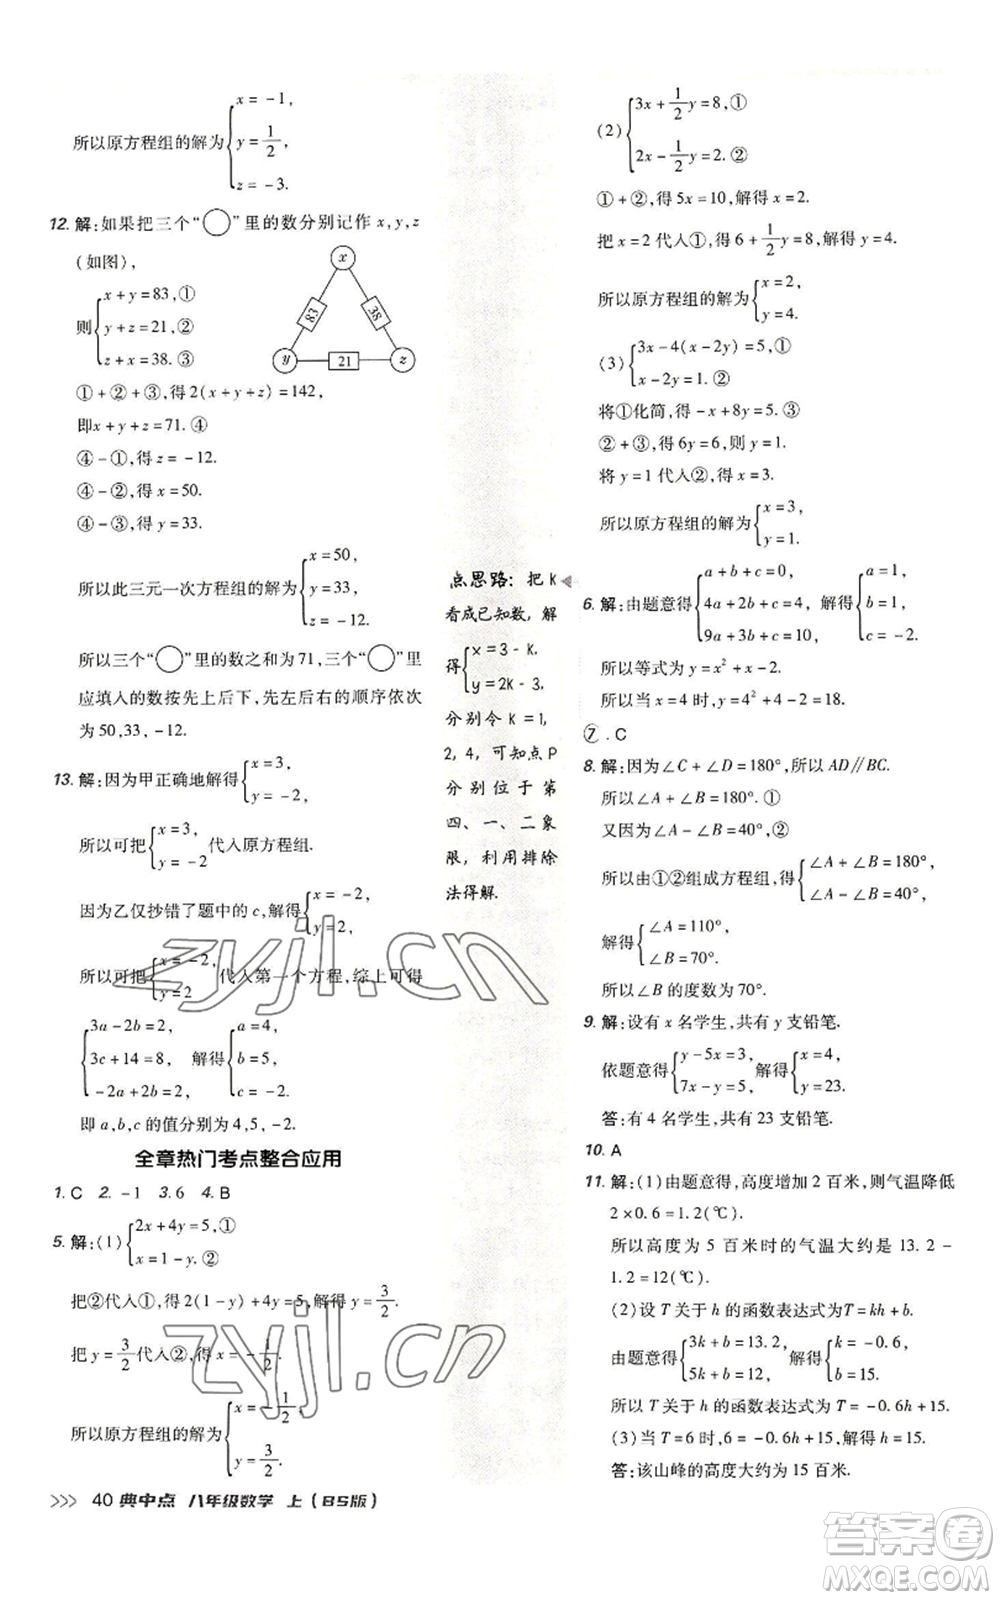 所以原方程组的解为{x=-1,
y=1/2,
z=-3.
12. 解:如果把三个“○”里的数分别记作 x,y,z
(如图),
则{x+y=83,①
y+z=21,②
z+x=38.③
x
83
38
y
21
z
①+②+③,得2(x+y+z)=142,
即x+y+z=71.④
④-①,得z=-12.
④-②,得x=50.
④-③,得y=33.
所以此三元一次方程组的解为{x=50,
y=33,
z=-12.
所以三个“○”里的数之和为71,三个“○”里
应填入的数按先上后下,先左后右的顺序依次
为50,33,-12.
13. 解:因为甲正确地解得{x=3,
y=-2,
所以可把{x=3,
y=-2代入原方程组.
因为乙仅抄错了题中的c,解得{x=-2,
y=2,
所以可把{x=-2,
y=2代入第一个方程,综上可得
{3a-2b=2,
3c+14=8,
-2a+2b=2,
解得{a=4,
b=5,
c=-2.
即a,b,c的值分别为4,5,-2.
全章热门考点整合应用
1. C 2. -1 3. 6 4. B
5. 解:(1){2x+4y=5,①
x=1-y.②
把②代入①,得2(1-y)+4y=5,解得y=3/2.
把y=3/2代入②,得x=-1/2.
所以原方程组的解为{x=-1/2,
y=3/2.
点思路:把K
看成已知数,解
得{x=3-k,
y=2K-3,
分别令K=1,
2,4,可知点P
分别位于第
四、一、二象
限,利用排除
法得解.
(2){3x+1/2y=8,①
2x-1/2y=2.②
①+②,得5x=10,解得x=2.
把x=2代入①,得6+1/2y=8,解得y=4.
所以原方程组的解为{x=2,
y=4.
(3){3x-4(x-2y)=5,①
x-2y=1.②
将①化简,得-x+8y=5.③
②+③,得6y=6,则y=1.
将y=1代入②,得x=3.
所以原方程组的解为{x=3,
y=1.
6. 解:由题意得{a+b+c=0,
4a+2b+c=4,
9a+3b+c=10,
解得{a=1,
b=1,
c=-2.
所以等式为y=x²+x-2.
所以当x=4时,y=4²+4-2=18.
⑦. C
8. 解:因为∠C+∠D=180°,所以AD∥BC.
所以∠A+∠B=180°.①
又因为∠A-∠B=40°,②
所以由①②组成方程组,得{∠A+∠B=180°,
∠A-∠B=40°,
解得{∠A=110°,
∠B=70°.
所以∠B的度数为70°.
9. 解:设有x名学生,共有y支铅笔.
依题意得{y-5x=3,
7x-y=5,
解得{x=4,
y=23.
答:有4名学生,共有23支铅笔.
10. A
11. 解:(1)由题意得,高度增加2百米,则气温降低
2×0.6=1.2(℃).
所以高度为5百米时的气温大约是13.2-
1.2=12(℃).
(2)设T关于h的函数表达式为T=kh+b.
由题意得{3k+b=13.2,
5k+b=12,
解得{k=-0.6,
b=15.
所以T关于h的函数表达式为T=-0.6h+15.
(3)当T=6时,6=-0.6h+15,解得h=15.
答:该山峰的高度大约为15百米.
>>> 40 典中点 八年级数学 上(BS版)
zyjl.cn
zyjl.cn
答案圈
MXQE.COM